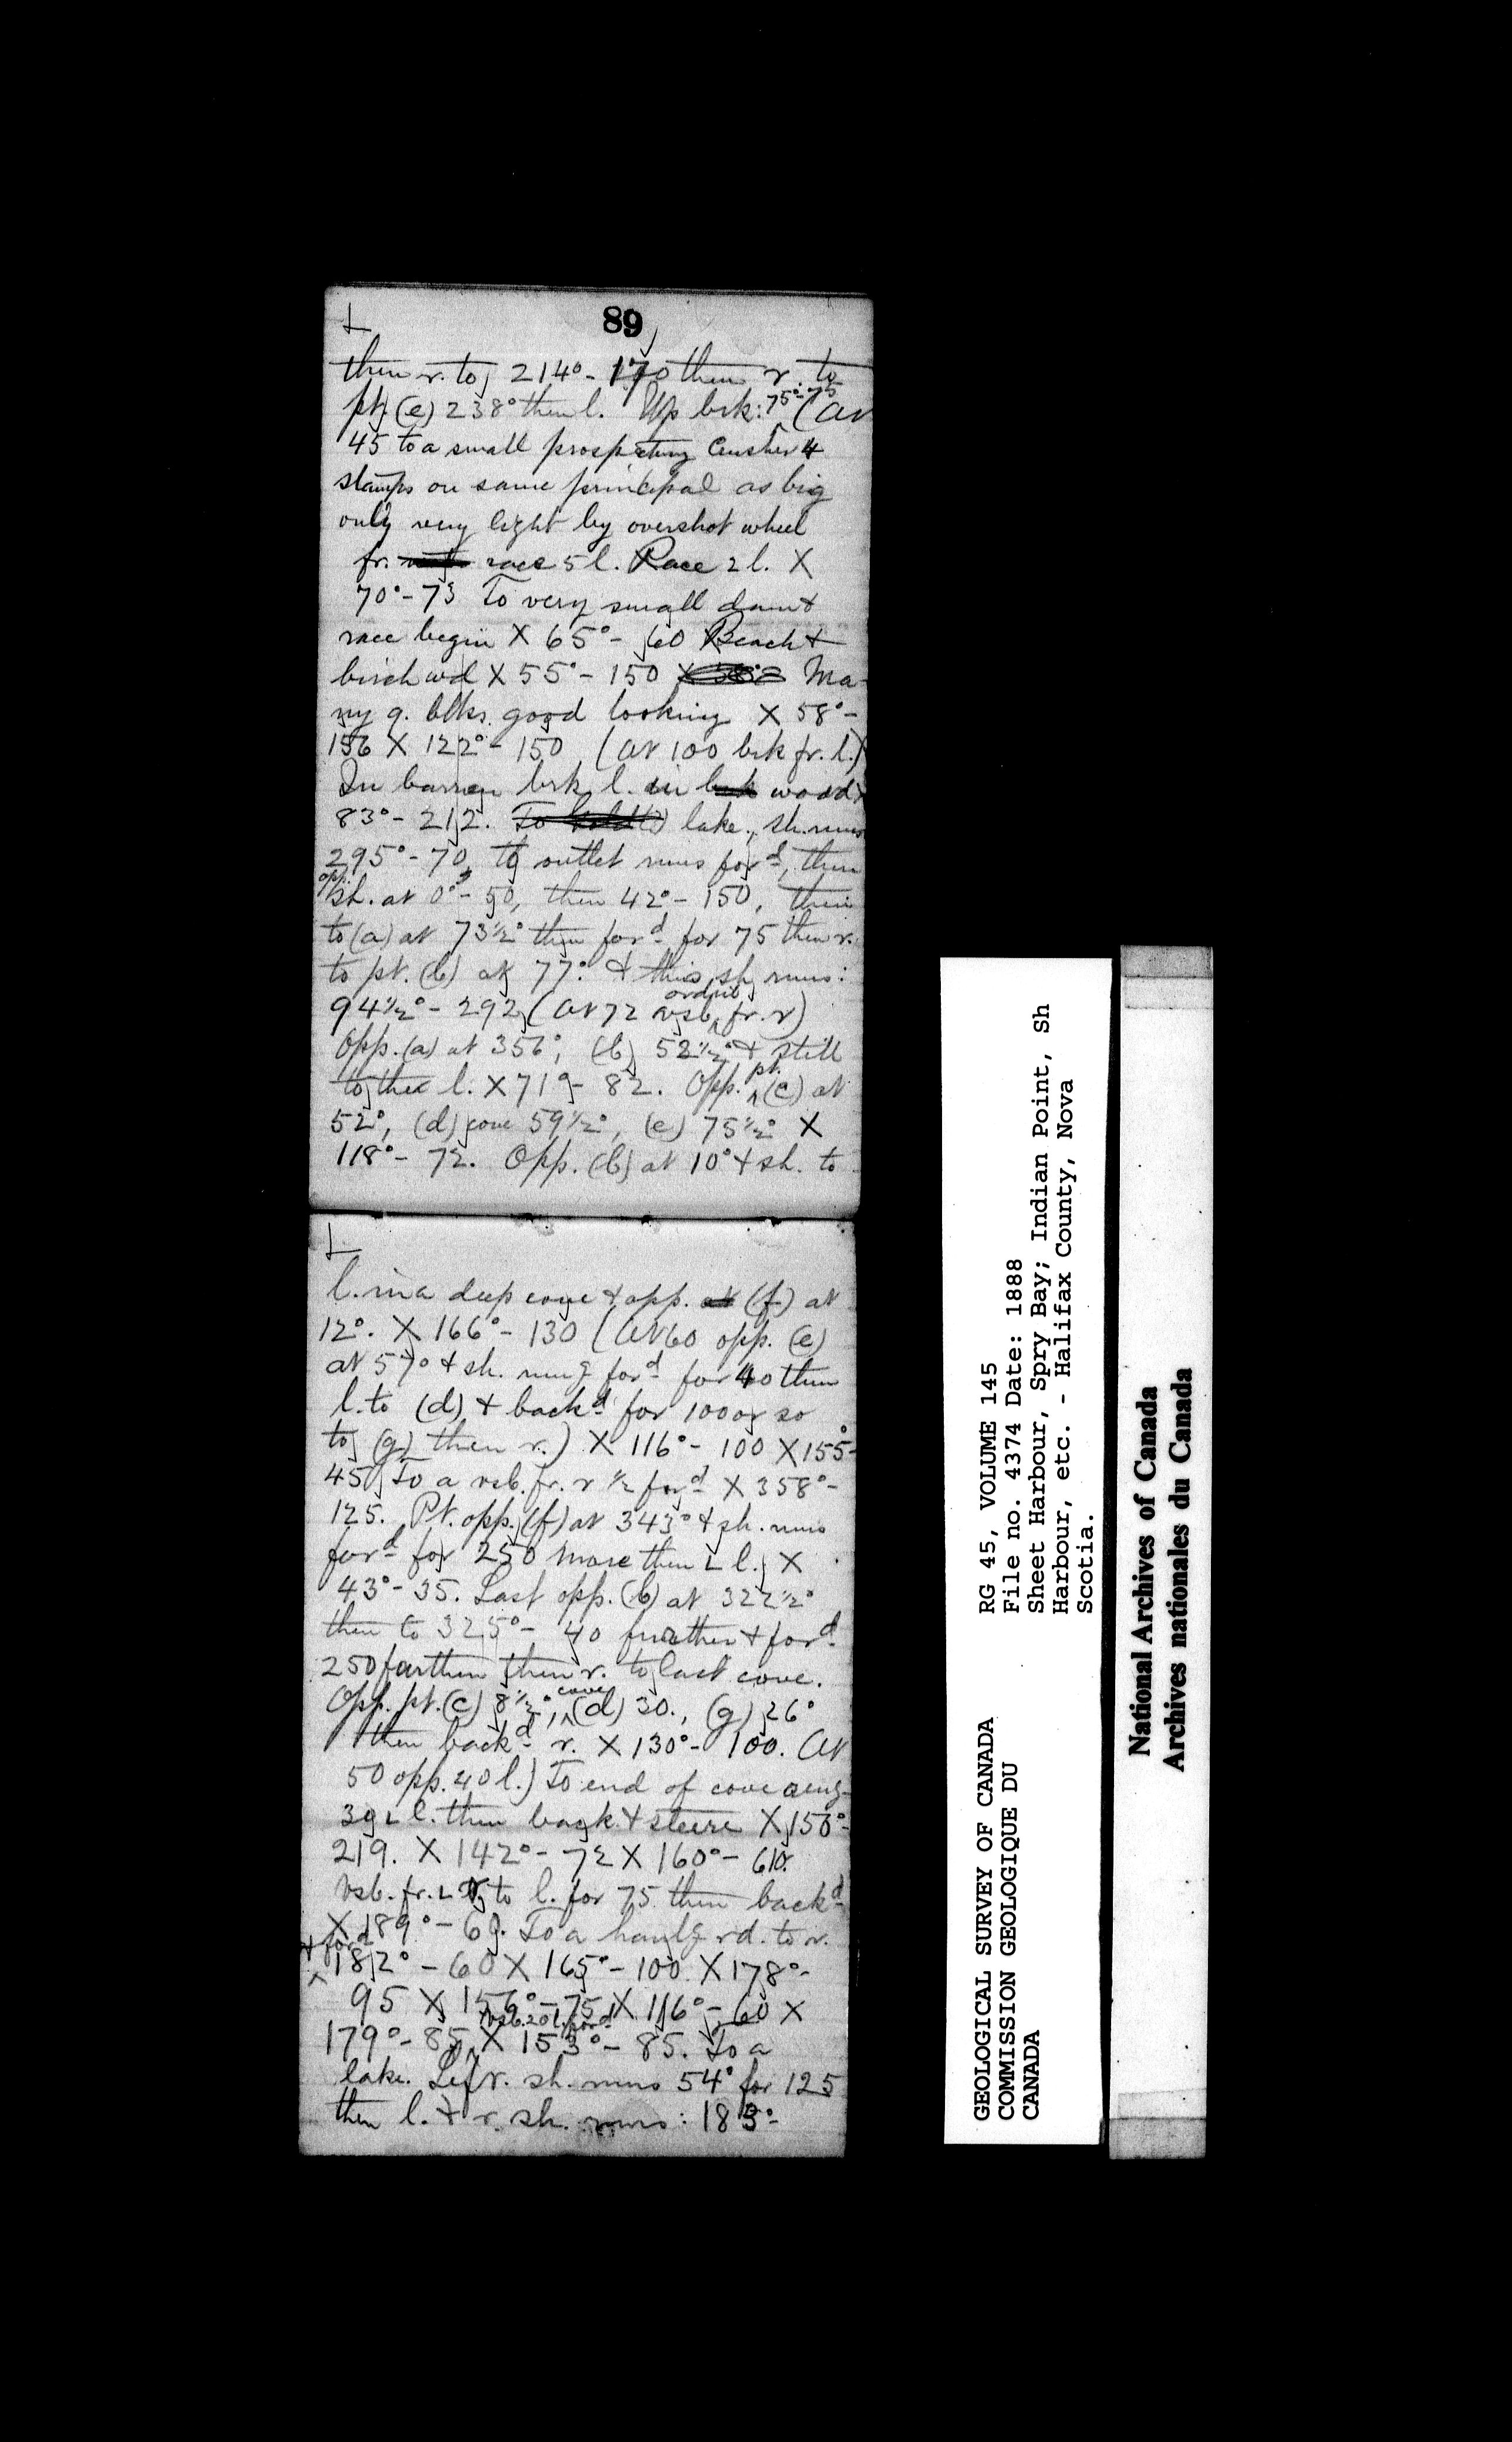 89
then r. to 214° - 170 then r. to
pt. (e) 238° then l. Up brk: 75° - 75 (at
45 to a small prospecting crusher 4
stamps on same principal as big
only very light by overshot wheel
fr. race 5 l. Race 2 l. X
70° - 73 To very small dam &
race begin X 65° - 60 Beach &
birch wd X 55° - 150 Ma-
ny q. blks. good looking X 58° -
156 X 122° - 150 (at 100 brk fr. l.)
In barren brk l. in wood X
83° - 212. lake, sh. runs
295° - 70, to outlet runs ford, then
opp. sh. at 0° - 50, then 42° - 150, then
to (a) at 73½° then ford for 75 then r.
to pt. (b) at 77° & this sh. runs:
94½° - 292 (at 72 vsb. fr. r)
Opp. (a) at 356°, (b) 52½° & still
to the l. X 71° - 82. Opp. pt. (c) at
52°, (d) cove 59½°, (e) 75½° X
118° - 72. Opp. (b) at 10° & sh. to
l. in a deep cove & opp. (f) at
12°. X 166° - 130 (at 60 opp. (e)
at 57° & sh. rung ford for 40 then
l. to (d) & backd for 100 or so
to (g) then r.) X 116° - 100 X 155° -
45 To a vsb. fr. r ½ ford X 358° -
125. Pt. opp. (f) at 343° & sh. runs
ford for 250 more then L l. X
43° - 35. Last opp. (b) at 322½°
then to 325° - 40 further & ford
250 farther then r. to last cove.
Opp. pt. (c) 8½°, cove (d) 30., (g) 26°
then backd r. X 130° - 100. At
50 opp. 40 l.) To end of cove
30 L l. then back & steere X 156° -
219. X 142° - 72 X 160° - 610.
Vsb. fr. L r. to l. for 75 then backd
X 189° - 60. To a haulg rd. to r.
& ford 182° - 60 X 165° - 100 X 178° -
95 X 156° - 75 X 116° - 60 X
179° - 85, vsb. 20 l. ford X 153° - 85. To a
lake. Left r. sh. runs 54° for 125
then l. & r. sh. runs: 183° -
RG 45, VOLUME 145
File no. 4374 Date: 1888
Sheet Harbour, Spry Bay; Indian Point, Sh
Harbour, etc. - Halifax County, Nova
Scotia.
GEOLOGICAL SURVEY OF CANADA
COMMISSION GEOLOGIQUE DU
CANADA
National Archives of Canada
Archives nationales du Canada